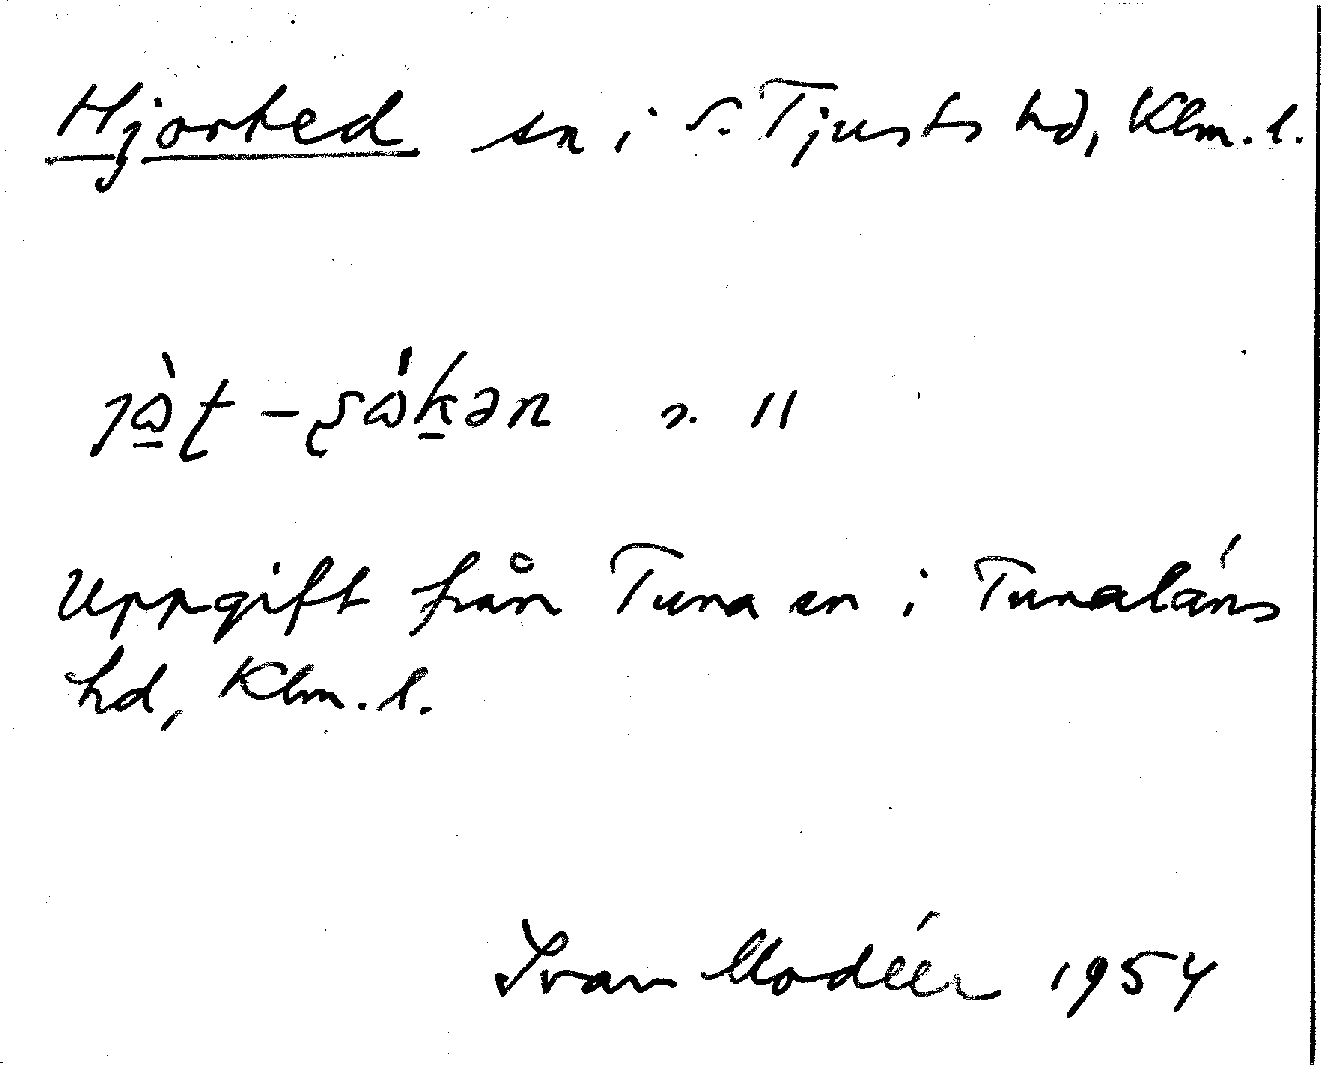 Hjorted sn i S. Tjusts hd, Klm. l.
Uppgift från Tuna sn i Tunaläns
hd, Klm. l.
Ivar Modéer 1954